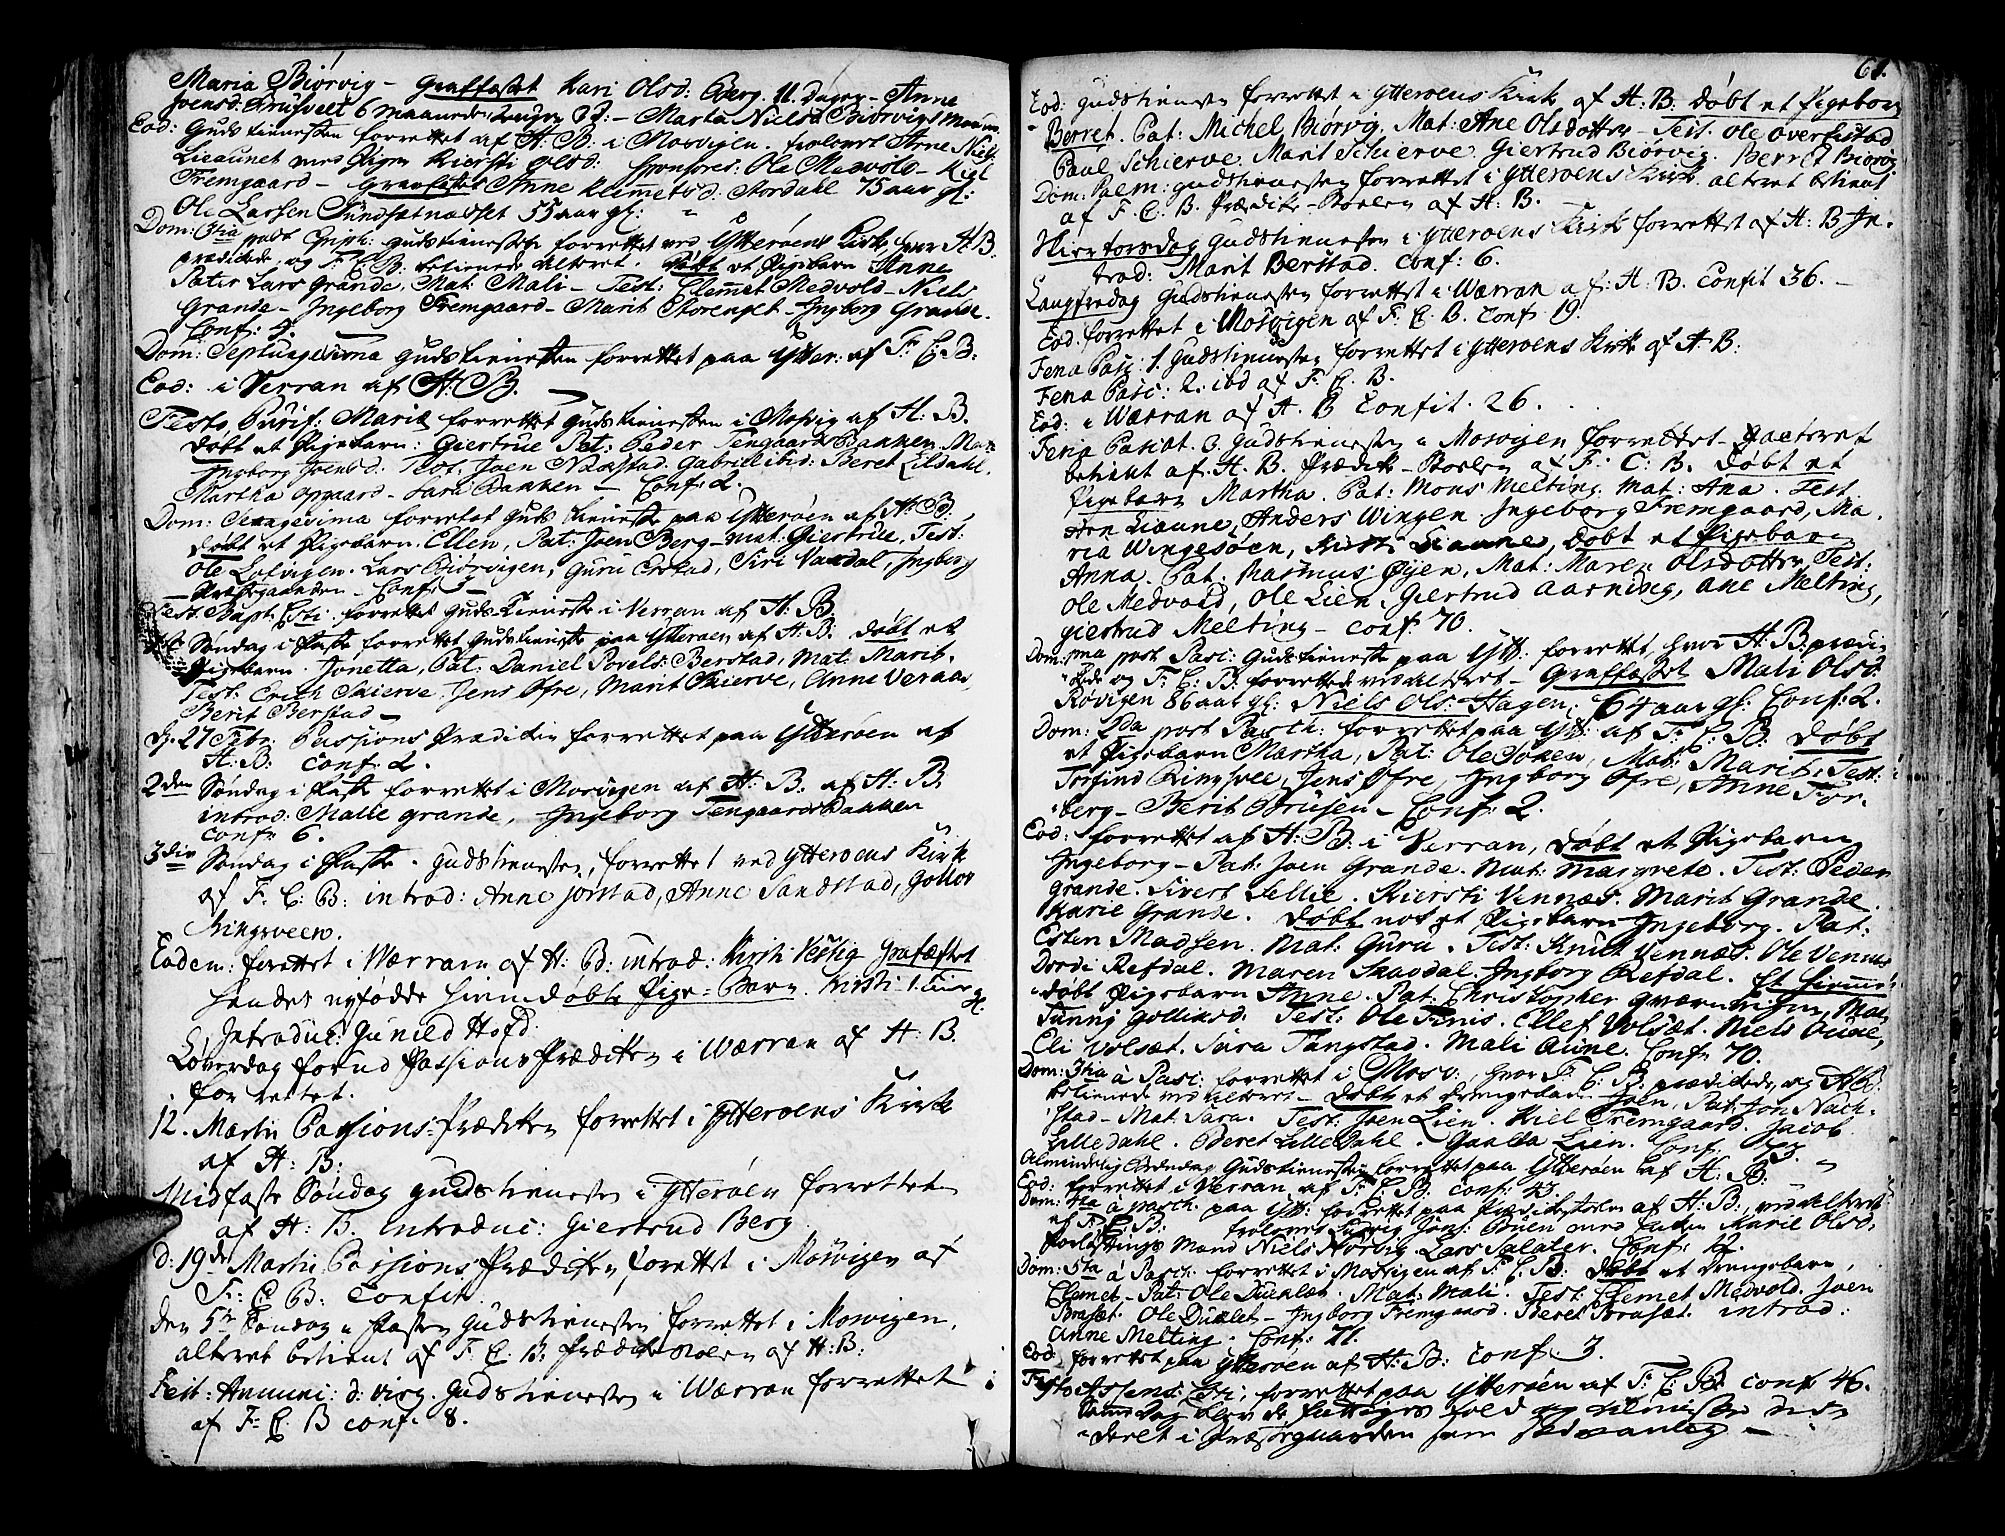 Maria Biørvig – Graffæstet Kari Olsd: Berg. 11. Dager – Anne
Joensd: 6 maaneder – Marta Nielsd Biørvigs
Eod: Guds tienesten forrettet af H: B: i Mosvigen. trolovet Arne Niels:
Lieaunet med Pigen Kiersti Olsd: Sponsores: Ole Medvold – Kiel
Fremgaard – Graffæstet Anne Klemetsd: Stordahl 75 aar gl:
Ole Larssen Sundsætnæsset 55 aar gl:
Dom: 3tia post Epiph: gudstienesten forrettet ved Ytterøens Kirk hvor H: B.
prædikede, og F: C: B: betienede Alteret. Døbt et Pigebarn Anne
Pater Lars Grande, Mat: Mali – Test: Clemet Medvold – Niels
Grande – Ingeborg Fremgaard – Marit Storenget – Ingborg Grande.
Conf: 4.
Dom: Septuagesima gudstienesten forrettet paa Ytter: af F: C: B:
Eod: i Verran af H: B.
Festo Purif: Mariæ forrettet gudstienesten i Mosvig af H: B.
Døbt et Pigebarn: Giertrue Pat: Peder Tengaards Bakken, Mat:
Ingborg Joensd: Test: Joen Naustad. Gabriel ibid: Beret Lildahl,
Martha Opgaard – Sara Bakken – Conf: 2.
Dom: Sexagesima forrettet Guds tieneste paa Ytterøen af H: B:,
Døbt et Pigebarn. Ellen, Pat: Joen Berg – Mat: Giertrue, Test:
Ole Letvigen. Lars Biørvigen, Guru Erstad, Siri Vandal, Ingborg
Præstgaarden – Conf: 3 –
Fest: Bapt: Xsti: forrettet Guds tieneste i Verran af H: B.
Søndag i Faste forrettet gudstieneste paa Ytterøen af H: B: døbt et
Pigebarn. Jonetta, Pat: Daniel Povels: Berstad, Mat: Marit.
Test: Erich Skierve, Jens Øfre, Marit Skierve, Anne Veraas,
Berit Berstad –
D: 27 Febr: Passions Prædiken forrettet paa Ytterøen af
H: B: Conf: 2.
2den Søndag i Faste forrettet i Mosvigen af H: B. af H: B
introd: Malle grande, Ingeborg Tengaards Bakken
Conf: 6.
3die Søndag i Faste. gudstienesten, forrettet ved Ytterøens Kirk
af F: C: B: introd: Anne Jørstad, Anne Sandstad, Gollov
Ringsveen.
Eodem: forettet i Wærran af H: B: introd: Kirsti Vestig Grafæstet
hendes nyfødde hiemdøbte Pige-Barn. Kirsti
Introduc: Gunild Hofd:
Løverdag forud Passions Prædiken i Wærran af H: B.
forrettet.
12. Martii Passions-Prædiken forrettet i Ytterøens Kirk
af H: B:
Midfaste Søndag gudstienesten i Ytterøen forrettet
af H: B. Introduc: Giertrud Berg
d: 19de Martii Passions Prædiken forettet i Mosvigen af
F: C: B: Confit.
den 5te Søndag i Fasten Gudstienesten forrettet i Mosvigen,
alteret betient af F: C: B: Prædikestolen af H: B:
Fest: Anunci: d: virg. Gudstienesten i Wærran forrettet
af F: C: B Conf: 8.
61.
Eod: gudstienesten forrettet i Ytterøens Kirk af H: B: Døbt et Pigebarn
Berret. Pat: Michel Biørvig. Mat: Ane Olsdotter – Test. Ole Overhstad
Paul Schierve. Marit Schierve. Giertrud Biørvig. Berret Biørvig
Dom: Palm: gudstienesten forrettet i Ytterøens Kirk. alteret betient
af F. C. B. Prædike-Stoelen af H: B.
Skiertorsdag Gudstienesten i Ytterøens Kirk forrettet af H: B. In-
trod: Marit Berstad. Conf: 6.
Langfredag Gudstienesten forrettet i Wærran af: H: B. Confit 36. –
Eod. forrettet i Mosvigen af F: C: B. Conf: 19.
Feria Pasc: 1. Gudstienesten forrettet i Ytterøens Kirk af H: B:
Feria Pasc: 2: ibd af F: C: B.
Eod: i Wærran af H: B Confit. 26.
Feria Pascat: 3 Gudstienesten i Mosvigen forrettet – alteret
betient af: H. B. Prædik-Stoelen af F: C: B. Døbt et
Pigebarn Martha. Pat: Mons Melting. Mat: Ana. Test.
Liaune, Anders Wingen. Ingeborg Fremgaard, Ma-
ria Wingesøen, Kirsti Liaune, Døbt et Pigebarn
Anna. Pat. Rasmus Øyen, Mat: Maren Olsdotter, Test:
Ole Medvold, Ole Lien, Giertrud Aarning, Ane Melting,
Giertrud Melting – Conf: 70.
Dom: 1ma post Pasc: Gudstieneste paa Ytt: forrettet, hvor H: B: prædi-
kede og F: C: B: forrettede ved alteret – Graffæstet Mali Olsd:
Røvigen 86 aar gl: Niels Ols: Hagen: 64 aar gl: Conf: 2.
Dom: 2da post Pasch: forrettet paa Ytt: af F: C: B: Døbt
et Pigebarn Martha, Pat: Ole Token, Mat: Marit, Test:
Torfind Ringsvee, Jens Øfre, Ingborg Øfre, Anne Tor-
berg – Berit Brusen – Conf: 2.
Eod: forrettet af H: B: i Verran, Døbt et Pigebarn
Ingeborg – Pat: Joen Grande. Mat: Margrete. Test: Peder
Grande. Sivert Lellie. Kiersti Vennæs. Marit Grande.
Karie Grande. Døbt not et Pigebarn Ingeborg. Pat:
Esten Madsen. Mat: Guru. Test: Knut Vennæs. Ole Vennes
Dordi Refdal. Maren Skavdal. Ingborg Refdal. Et hiemme
døbt Pigebarn Anne. Pat: Christopher Qværnvigen, Mat:
Sunni Golliksd. Test: Ole Tinis. Ellef Volsæt. Niels Aune,
Eli Volsæt. Sara Tangstad. Mali Aune. Conf: 70.
Dom: 3tia à Pasc: forrettet i Mosv:, hvor F: C: B: prædikede, og H: B:
betienede ved alteret – Døbt et Drengebarn Joen, Pat: Jon Nach-
stad – Mat: Sara. Test: Joen Lien. Kiel Fremgaard. Jacob
Lilledahl. Beret Lilledahl. Lien. Conf:
Almindelig Bededag Gudstienesten forrettet paa Ytterøen af H: B:
Eod: forrettet i Verran af F: C: B: Conf: 43.
Dom: 4ta à pasch: paa Ytt: forrettet paa Prædikstolen af H: B:, ved alteret
af F: C: B: troloves Ludvig Jons: Bøen med Enken Marie Olsd,
Forlovings Mænd Niels Norvig. Lars Salater. Conf: 12.
Dom: 5ta à Pasch: forrettet i Mosvigen af F: C: B: Døbt et Drengebarn,
Clemet – Pat: Ole Duklæt. Mat: Mali. Test: Clemet Medvold. Joen
Brasæt. Ole Duklet – Ingborg Fremgaard. Beret Brasæt. introd:
Anne Melting. Conf: 71.
Eod: forrettet paa Ytterøen af H: B: Conf: 3.
Festo Assens: Xsti: forrettet paa Ytterøen af F: C: B: Conf: 46.
Samme Dag blev de fattiges
deelt i Præstegaarden som sædvanlig –